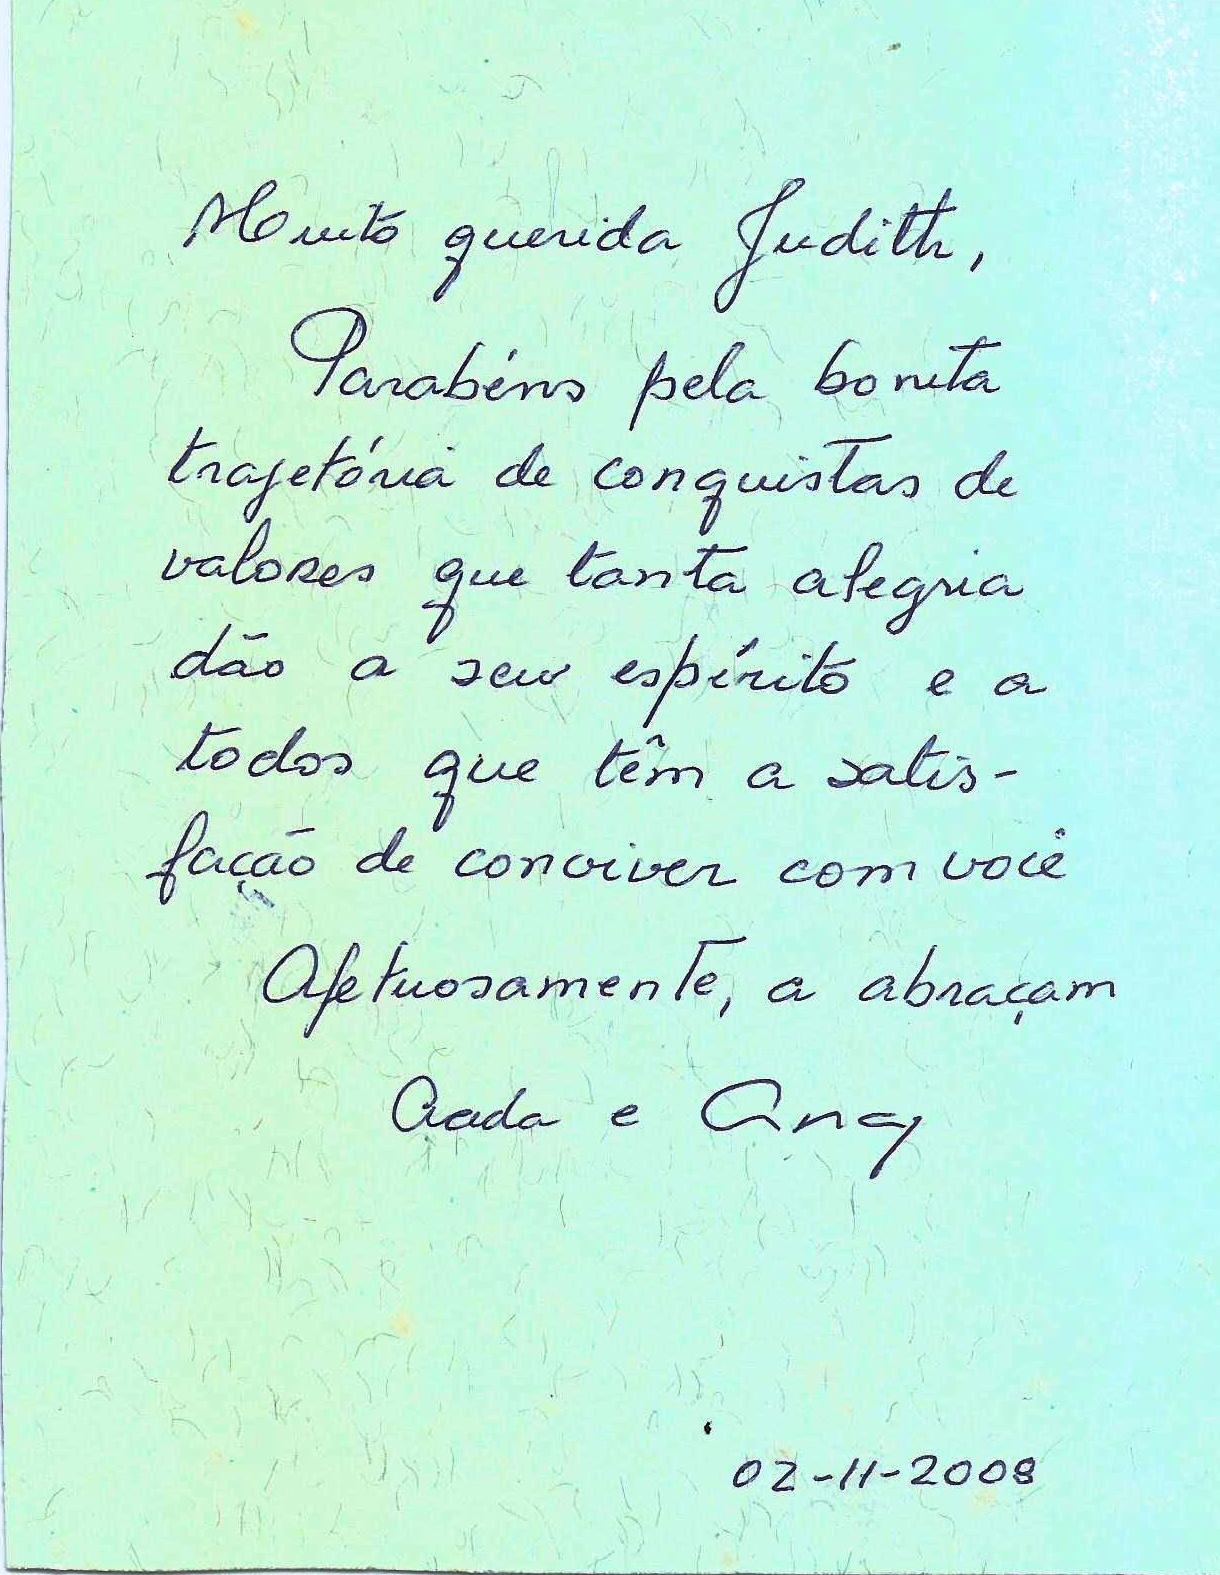 Muito querida Judith,
Parabéns pela bonita
trajetória de conquistas de
valores que tanta alegria
dão a seu espírito e a
todos que têm a satis-
fação de conviver com você
Afetuosamente, a abraçam
e
02-11-2008